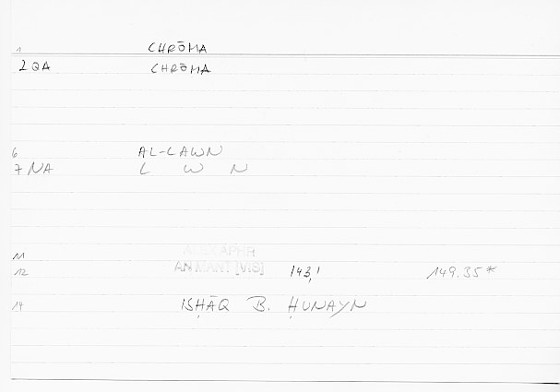 1 CHRŌMA
2 QA CHRŌMA
6 AL-LAWN
7 NA L W N
11 
12 AN MANT [VIS] 143,1 149.35*
14 ISḤĀQ B. ḤUNAYN